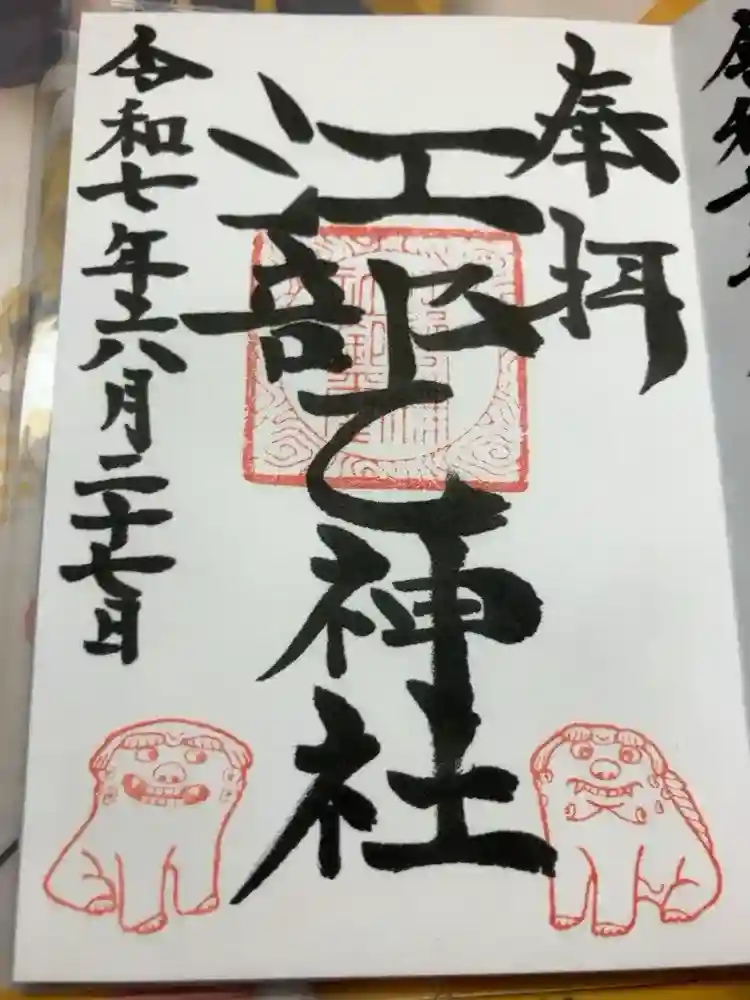 奉拝
江部乙神社
令和七年六月二十七日